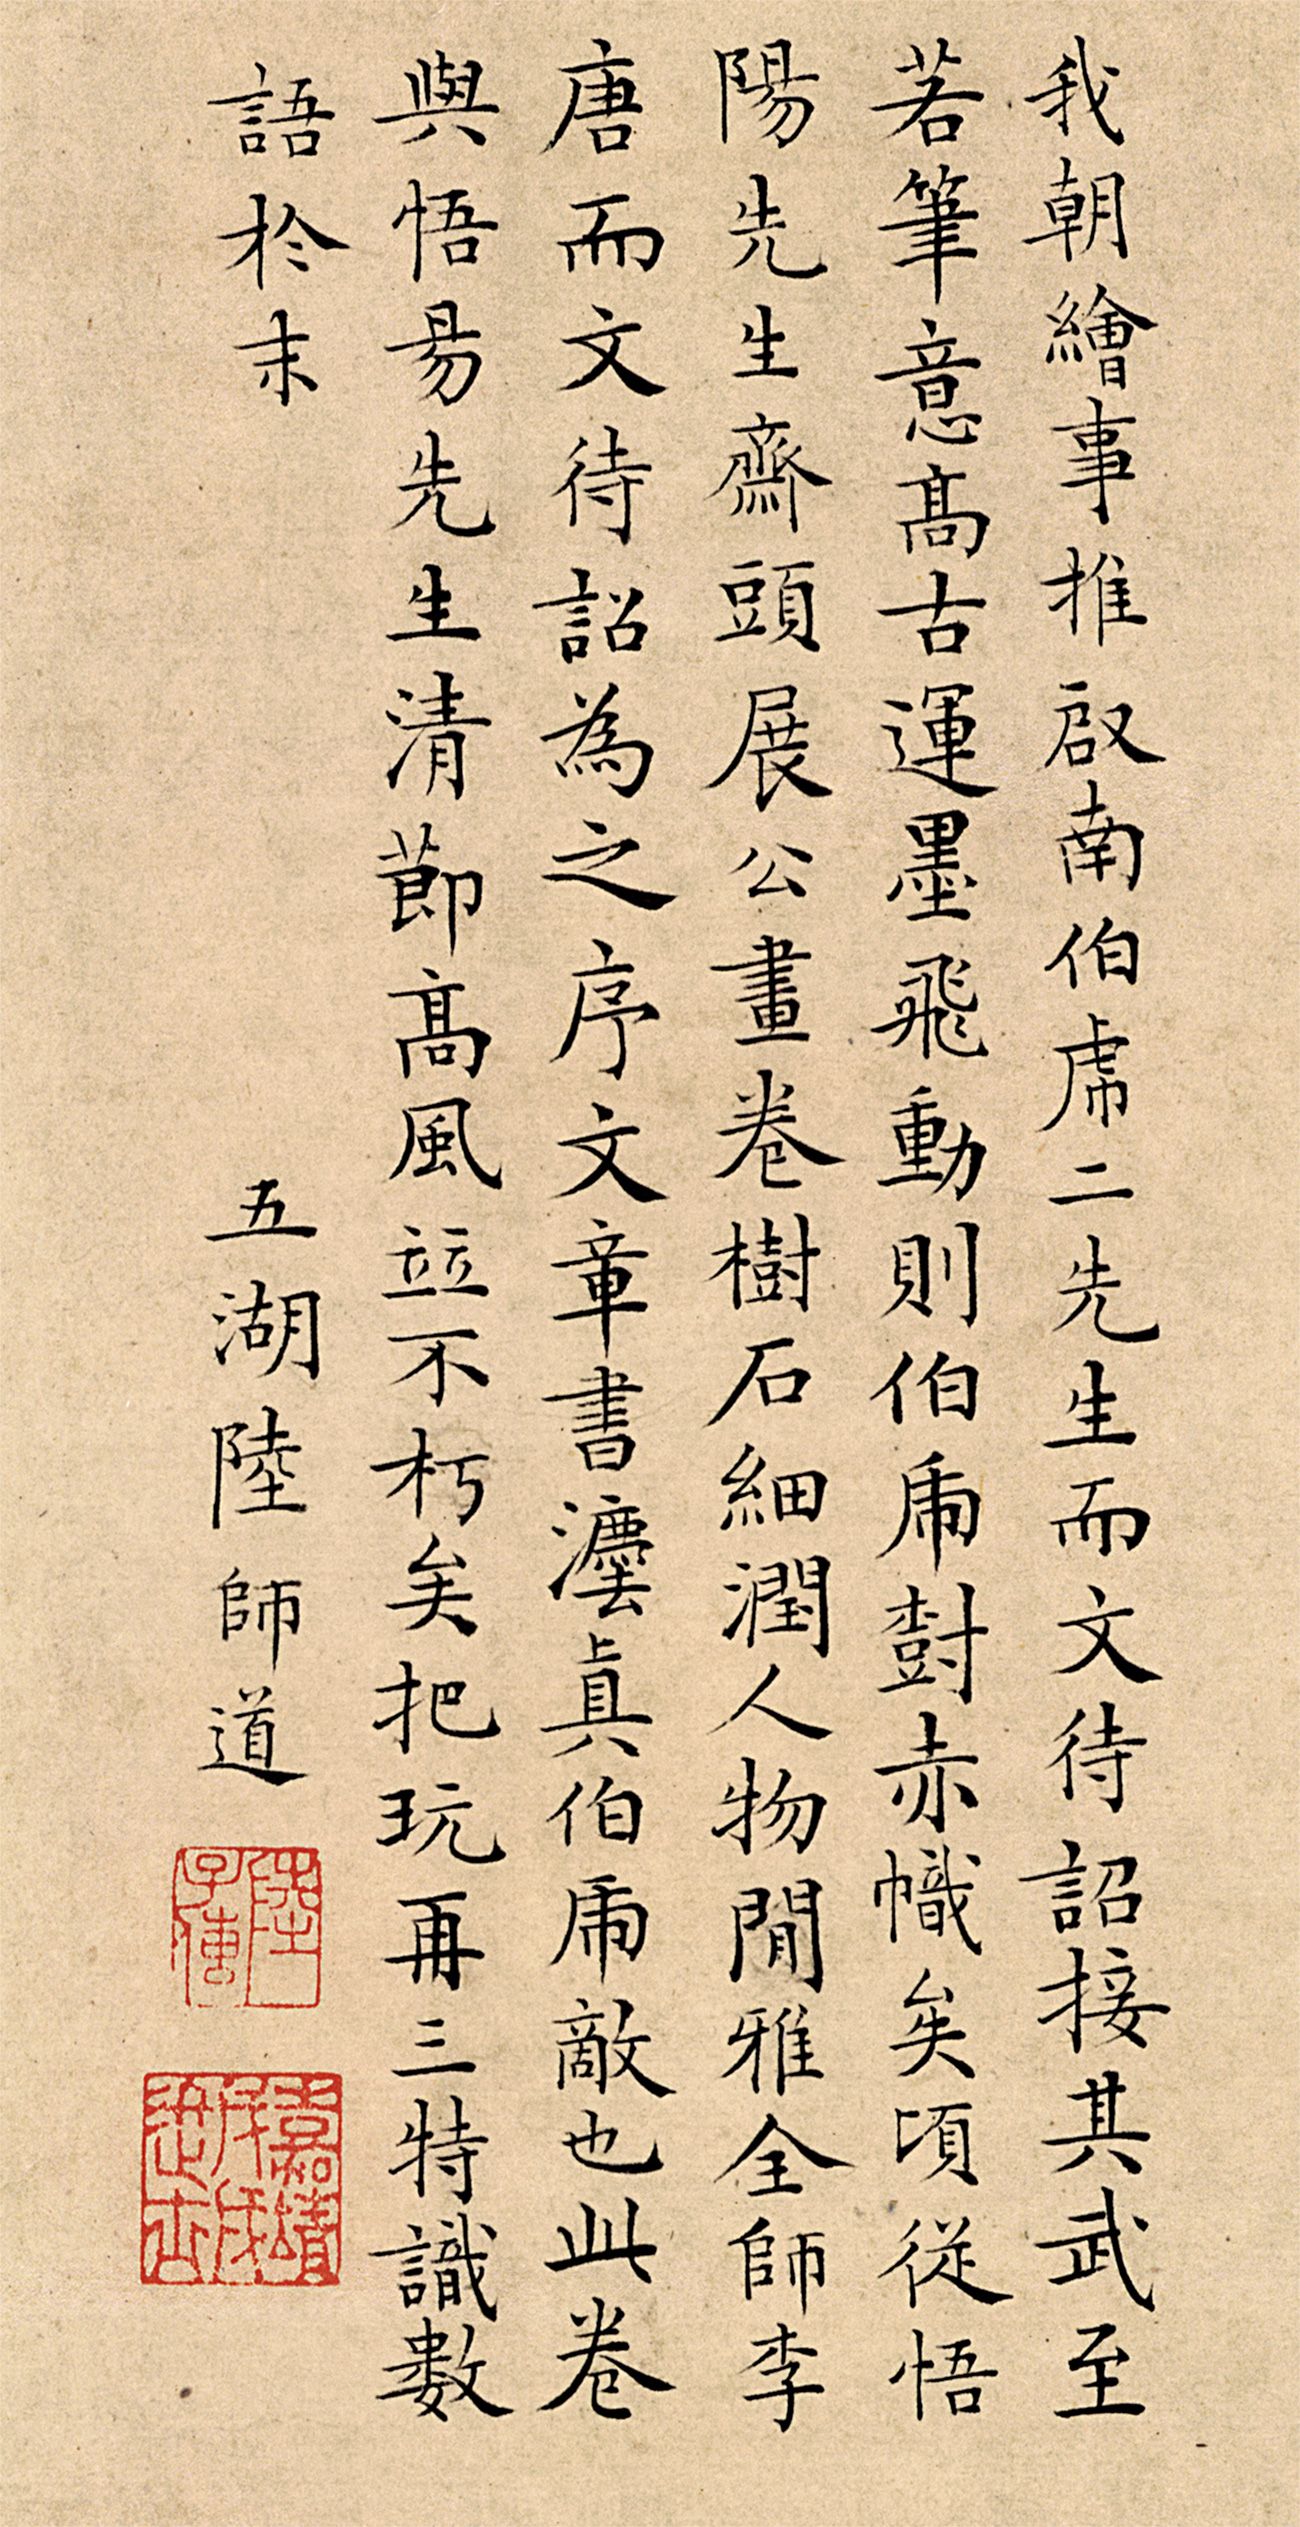 我朝繪事推啟南伯虎二先生而文待詔接其武至
若筆意髙古運墨飛動則伯虎樹赤幟矣頃從悟
陽先生齋頭展公畫卷樹石細潤人物閒雅全師李
唐而文待詔為之序文章書灋眞伯虎敵也此卷
與悟昜先生清節髙風竝不朽矣把玩再三特識數
語於末
五湖陸師道
陸子傳
嘉靖戊戌進士